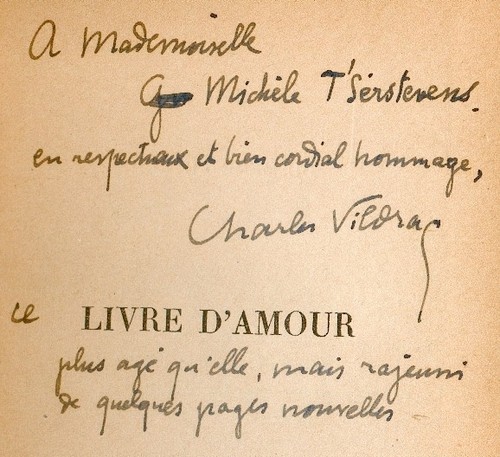 A Mademoiselle
Michèle T'Serstevens.
en respectueux et bien cordial hommage,
Charles Vildrac
ce LIVRE D'AMOUR
plus agé qu'elle, mais rajeuni
de quelques pages nouvelles